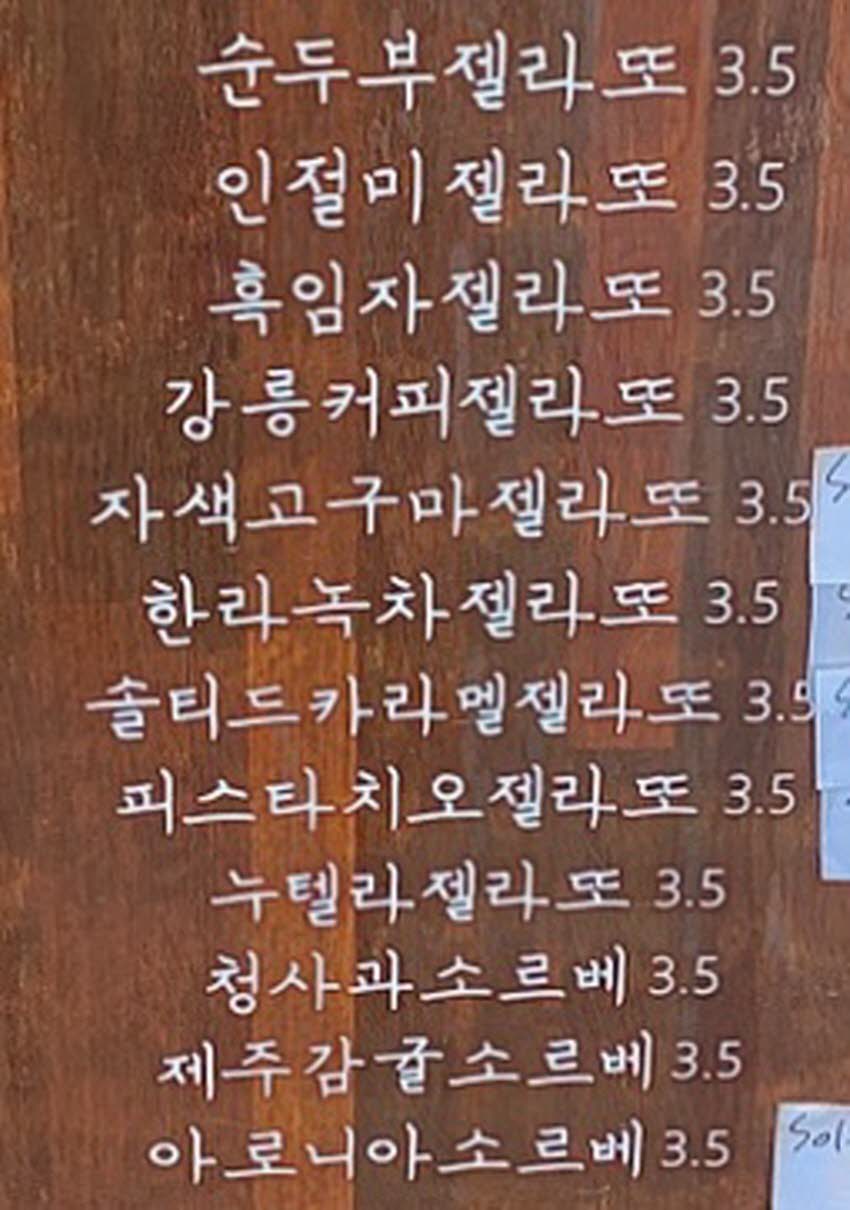 순두부젤라또 3.5
인절미젤라또 3.5
흑임자젤라또 3.5
강릉커피젤라또 3.5
자색고구마젤라또 3.5
한라녹차젤라또 3.5
솔티드카라멜젤라또 3.5
피스타치오젤라또 3.5
누텔라젤라또 3.5
청사과소르베 3.5
제주감귤소르베 3.5
아로니아소르베 3.5